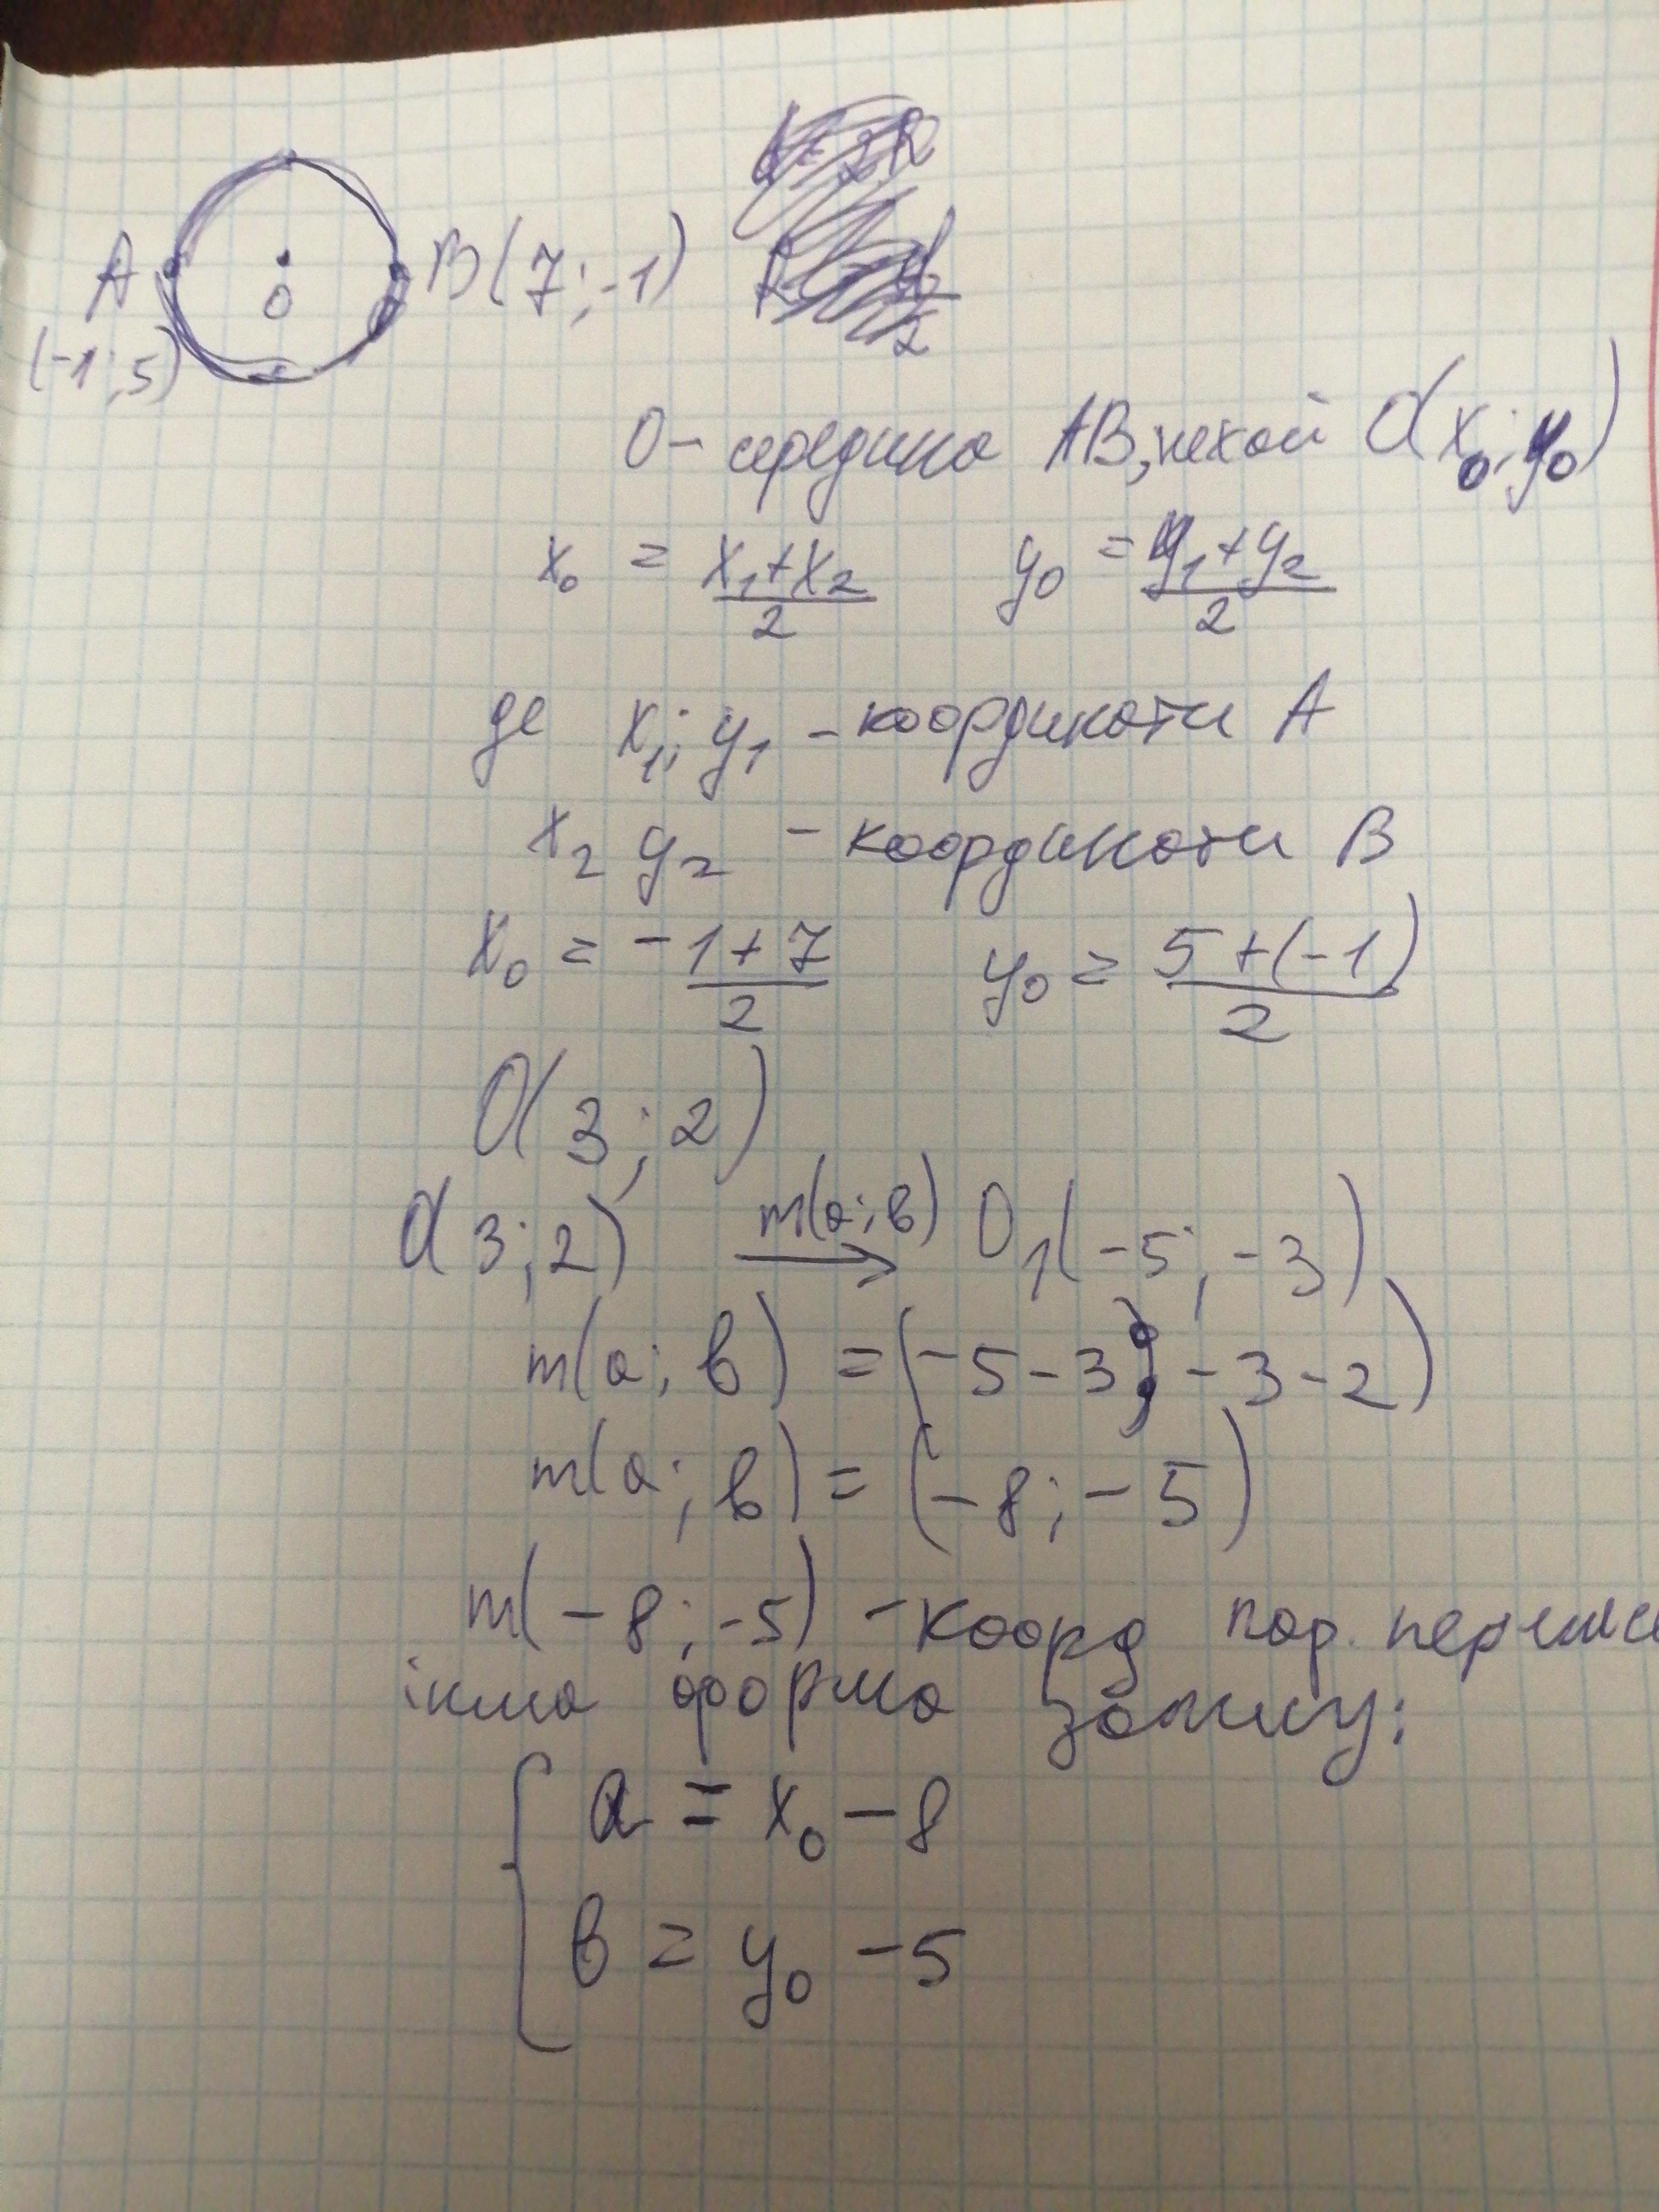 A O B(7;-1)
(-1;5)
O – середина AB, нехай O(x₀;y₀)
x₀ = (x₁+x₂)/2 y₀ = (y₁+y₂)/2
де x₁; y₁ – координати A
x₂ y₂ – координати B
x₀ = (-1+7)/2 y₀ = (5+(-1))/2
O(3;2)
O(3;2) m(a;в)→ O₁(-5;-3)
m(a;в) = (-5-3;-3-2)
m(a;в) = (-8;-5)
m(-8;-5) – коорд пар.
інша форма запису:
{ a = x₀ - 8
в = y₀ - 5